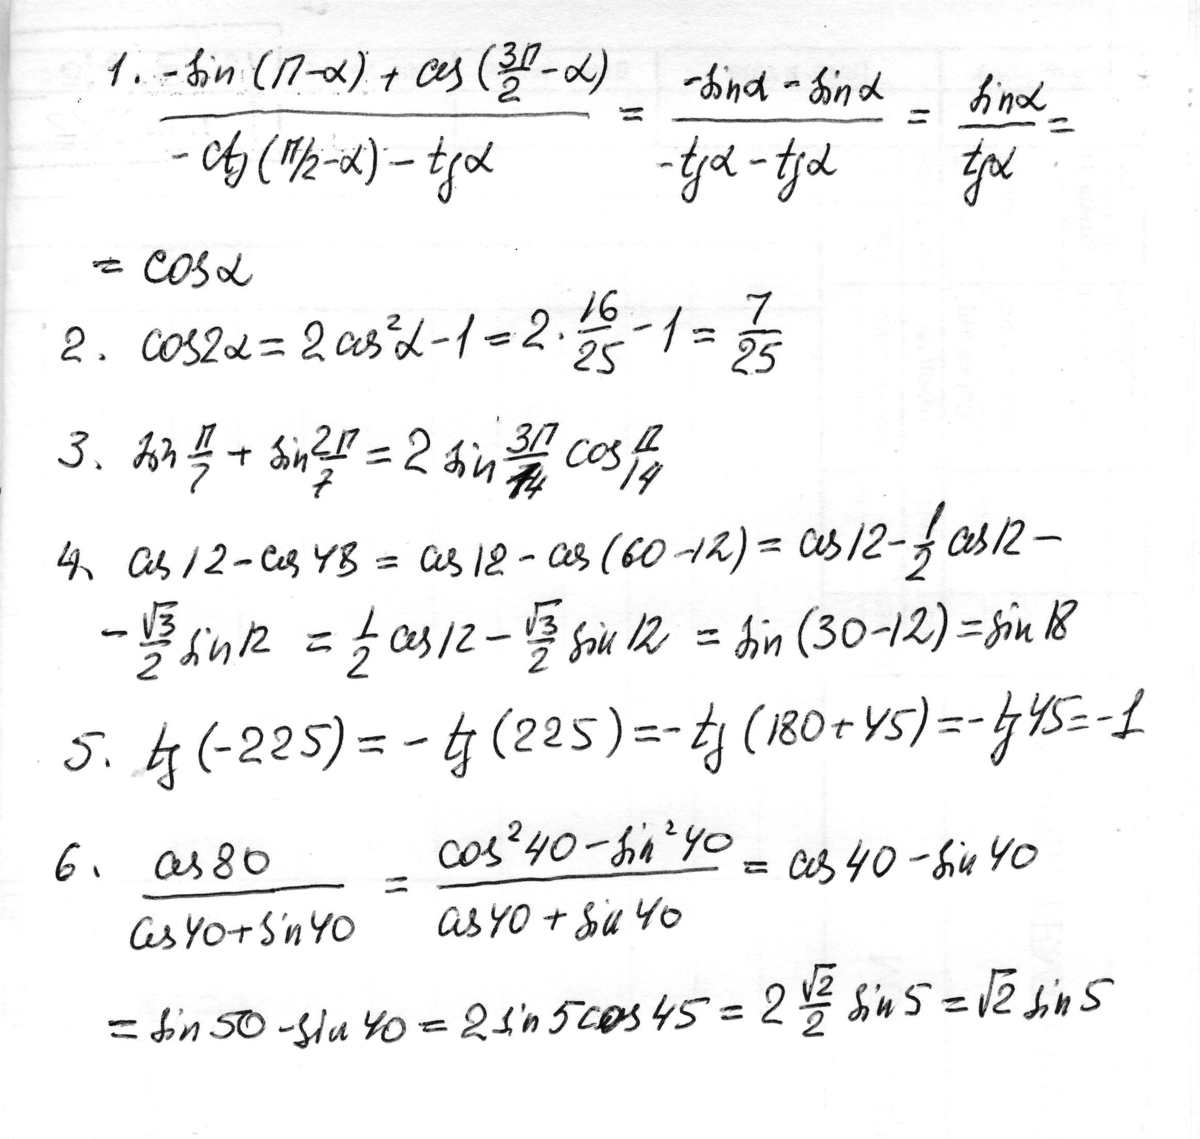 1. (-sin(π-α) + cos(3π/2-α))/(-ctg(π/2-α) - tgα) = (-sinα - sinα)/(-tgα - tgα) = sinα/tgα =
= cosα
2. cos2α = 2cos²α - 1 = 2·16/25 - 1 = 7/25
3. sin π/7 + sin 2π/7 = 2 sin 3π/14 cos π/14
4. cos 12 - cos 48 = cos 12 - cos(60-12) = cos 12 - 1/2 cos 12 -
- √3/2 sin 12 = 1/2 cos 12 - √3/2 sin 12 = sin(30-12) = sin 18
5. tg(-225) = -tg(225) = -tg(180+45) = -tg 45 = -1
6. cos 80/(cos 40 + sin 40) = (cos² 40 - sin² 40)/(cos 40 + sin 40) = cos 40 - sin 40
= sin 50 - sin 40 = 2 sin 5 cos 45 = 2 √2/2 sin 5 = √2 sin 5